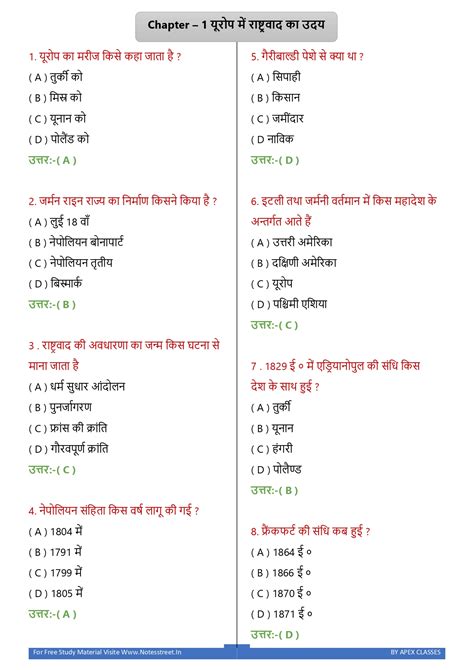 Chapter – 1 यूरोप में राष्ट्रवाद का उदय
1. यूरोप का मरीज किसे कहा जाता है ?
( A ) तुर्की को
( B ) मिस्र को
( C ) यूनान को
( D ) पोलैंड को
उत्तर:-( A )
2. जर्मन राइन राज्य का निर्माण किसने किया है ?
( A ) लुई 18 वाँ
( B ) नेपोलियन बोनापार्ट
( C ) नेपोलियन तृतीय
( D ) बिस्मार्क
उत्तर:-( B )
3 . राष्ट्रवाद की अवधारणा का जन्म किस घटना से
माना जाता है
( A ) धर्म सुधार आंदोलन
( B ) पुनर्जागरण
( C ) फ्रांस की क्रांति
( D ) गौरवपूर्ण क्रांति
उत्तर:-( C )
4. नेपोलियन संहिता किस वर्ष लागू की गई ?
( A ) 1804 में
( B ) 1791 में
( C ) 1799 में
( D ) 1805 में
उत्तर:-( A )
5. गैरीबाल्डी पेशे से क्या था ?
( A ) सिपाही
( B ) किसान
( C ) जमींदार
( D नाविक
उत्तर:-( D )
6. इटली तथा जर्मनी वर्तमान में किस महादेश के
अन्तर्गत आते हैं
( A ) उत्तरी अमेरिका
( B ) दक्षिणी अमेरिका
( C ) यूरोप
( D ) पश्चिमी एशिया
उत्तर:-( C )
7 . 1829 ई ० में एड्रियानोपुल की संधि किस
देश के साथ हुई ?
( A ) तुर्की
( B ) यूनान
( C ) हंगरी
( D ) पोलैण्ड
उत्तर:-( B )
8. फ्रैंकफर्ट की संधि कब हुई ?
( A ) 1864 ई ०
( B ) 1866 ई ०
( C ) 1870 ई ०
( D ) 1871 ई ०
उत्तर:-( D )
For Free Study Material Visite Www.Notesstreet.In
BY APEX CLASSES